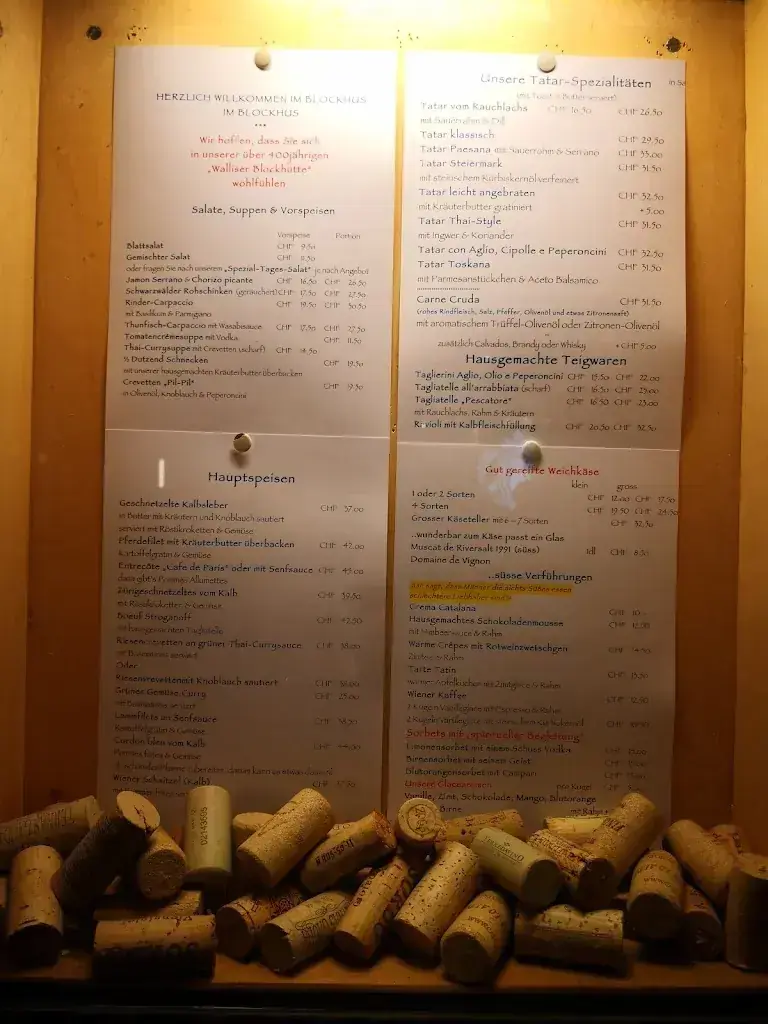 HERZLICH WILLKOMMEN IM BLOCKHUS
IM BLOCKHUS
***
Wir hoffen, dass Sie sich
in unserer über 400jährigen
„Walliser Blockhütte"
wohlfühlen
Salate, Suppen & Vorspeisen
Vorspeise Portion
Blattsalat CHF 9.50
Gemischter Salat CHF 11.50
oder fragen Sie nach unserem „Spezial-Tages-Salat" je nach Angebot
Jamon Serrano & Chorizo picante CHF 16.50 CHF 26.50
Schwarzwälder Rohschinken (geräuchert) CHF 17.50 CHF 27.50
Rinder-Carpaccio CHF 19.50 CHF 30.50
mit Basilikum & Parmigano
Thunfisch-Carpaccio mit Wasabisauce CHF 17.50 CHF 27.50
Tomatencrèmesuppe mit Vodka CHF 11.50
Thai-Currysuppe mit Crevetten (scharf) CHF 14.50
½ Dutzend Schnecken CHF 19.50
mit unserer hausgemachten Kräuterbutter überbacken
Crevetten „Pil-Pil" CHF 19.50
in Olivenöl, Knoblauch & Peperoncini
Hauptspeisen
Geschnetzelte Kalbsleber CHF 37.00
in Butter mit Kräutern und Knoblauch sautiert
serviert mit Röstikroketten & Gemüse
Pferdefilet mit Kräuterbutter überbacken CHF 42.00
Kartoffelgratin & Gemüse
Entrecôte „Cafe de Paris" oder mit Senfsauce CHF 43.00
dazu gibt's Pommes Allumettes
Zürigeschnetzeltes vom Kalb CHF 39.50
mit Röstikroketten & Gemüse
Boeuf Stroganoff CHF 42.50
mit hausgemachten Tagliatelle
Riesencrevetten an grüner Thai-Currysauce CHF 38.00
mit Basmatireis serviert
Oder
Riesencrevetten mit Knoblauch sautiert CHF 38.00
Grünes Gemüse Curry CHF 25.00
mit Basmatireis serviert
Lammfilets an Senfsauce CHF 38.50
Kartoffelgratin & Gemüse
Cordon bleu vom Kalb CHF
Pommes frites & Gemüse
Wiener Schnitzel (Kalb) CHF 37.50
Unsere Tatar-Spezialitäten
(mit Toast & Butter serviert)
Tatar vom Rauchlachs CHF 16.50 CHF 26.50
mit Sauerrahm & Dill
Tatar klassisch CHF 29.50
Tatar Paesana mit Sauerrahm & Serrano CHF 33.00
Tatar Steiermark CHF 31.50
mit steirischem Kürbiskernöl verfeinert
Tatar leicht angebraten CHF 32.50
mit Kräuterbutter gratiniert + 5.00
Tatar Thai-Style CHF 31.50
mit Ingwer & Koriander
Tatar con Aglio, Cipolle e Peperoncini CHF 32.50
Tatar Toskana CHF 31.50
mit Parmesanstückchen & Aceto Balsamico
Carne Cruda CHF 31.50
(rohes Rindfleisch, Salz, Pfeffer, Olivenöl und etwas Zitronensaft)
mit aromatischem Trüffel-Olivenöl oder Zitronen-Olivenöl
zusätzlich Calvados, Brandy oder Whisky + CHF 5.00
Hausgemachte Teigwaren
Taglierini Aglio, Olio e Peperoncini CHF 15.50 CHF 22.00
Tagliatelle all'arrabbiata (scharf) CHF 16.50 CHF 23.00
Tagliatelle „Pescatore" CHF 16.50 CHF 23.00
mit Rauchlachs, Rahm & Kräutern
Ravioli mit Kalbfleischfüllung CHF 20.50 CHF 32.50
Gut gereifte Weichkäse
klein gross
1 oder 2 Sorten CHF 12.00 CHF 17.50
4 Sorten CHF 19.50 CHF 24.50
Grosser Käseteller mit 6 – 7 Sorten CHF 32.50
..wunderbar zum Käse passt ein Glas
Muscat de Riversalt 1991 (süss) 1dl CHF 8.50
Domaine de Vignon
..süsse Verführungen
Crema Catalana CHF 10.–
Hausgemachtes Schokoladenmousse CHF 12.00
mit Himbeersauce & Rahm
Warme Crêpes mit Rotweinzwetschgen CHF 14.50
Zimteis & Rahm
Tarte Tatin CHF 13.50
warmer Apfelkuchen mit Zimtglace & Rahm
Wiener Kaffee CHF 12.50
1 Kugel Vanilleglace mit Espresso & Rahm
Sorbets mit „spezieller Begleitung"
Limonensorbet mit einem Schuss Vodka
Birnensorbet mit seinem Geist
Blutorangensorbet mit Campari
Unsere Glacesorten pro Kugel
Vanille, Zimt, Schokolade, Mango, Blutorange
Birne mit Rahm +